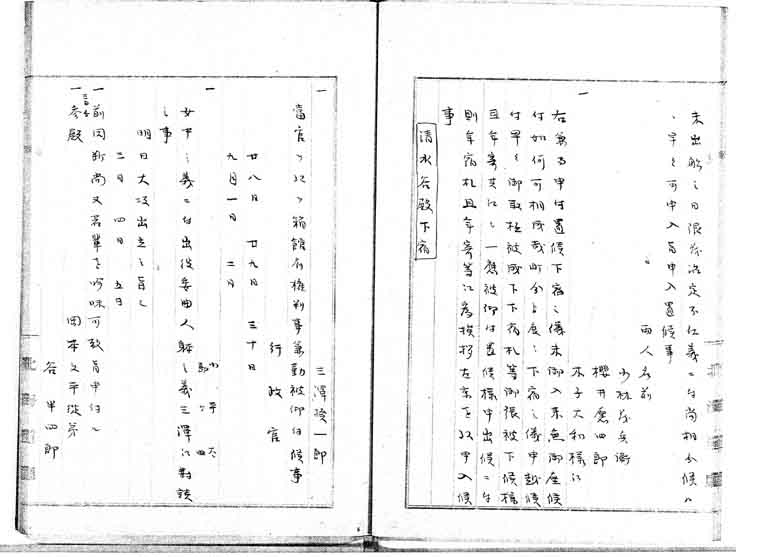 未出帆之日限等決定不仕義ニ付尚相分候ハ
ゝ早々可申入旨申入置候事
両人名前
一
小林茂兵衛
櫻井應四郎
木子大和様江
右兼而申付置候下宿之儀未御入来無御座候
付如何可相成哉町分ゟ度々下宿之儀申越候
付早々御取極被成下下宿札等御張被下候様
且年寄共江一應被仰付置候様申出候ニ付
則年宿札且年寄等江為挨拶左京を以申入候
事
清水谷殿下宿
一
三澤揆一郎
當官ヲ以ヲ箱館府権判事兼勤被仰付候事
行政官
廿八日 廿九日 三十日
九月一日 二日
一
女中之義ニ付出役委曲人躰之義三澤江對談
之事
明日大坂出立之旨也
三日 四日 五日
一前同断尚又若輩を吟味可致旨申付也
岡本文平従弟
一参殿
谷甲四郎